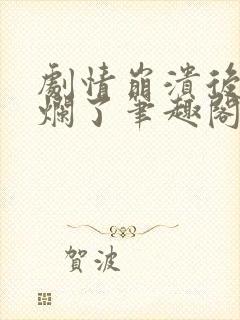 劇情崩潰後
爛了筆趣閣
賀波